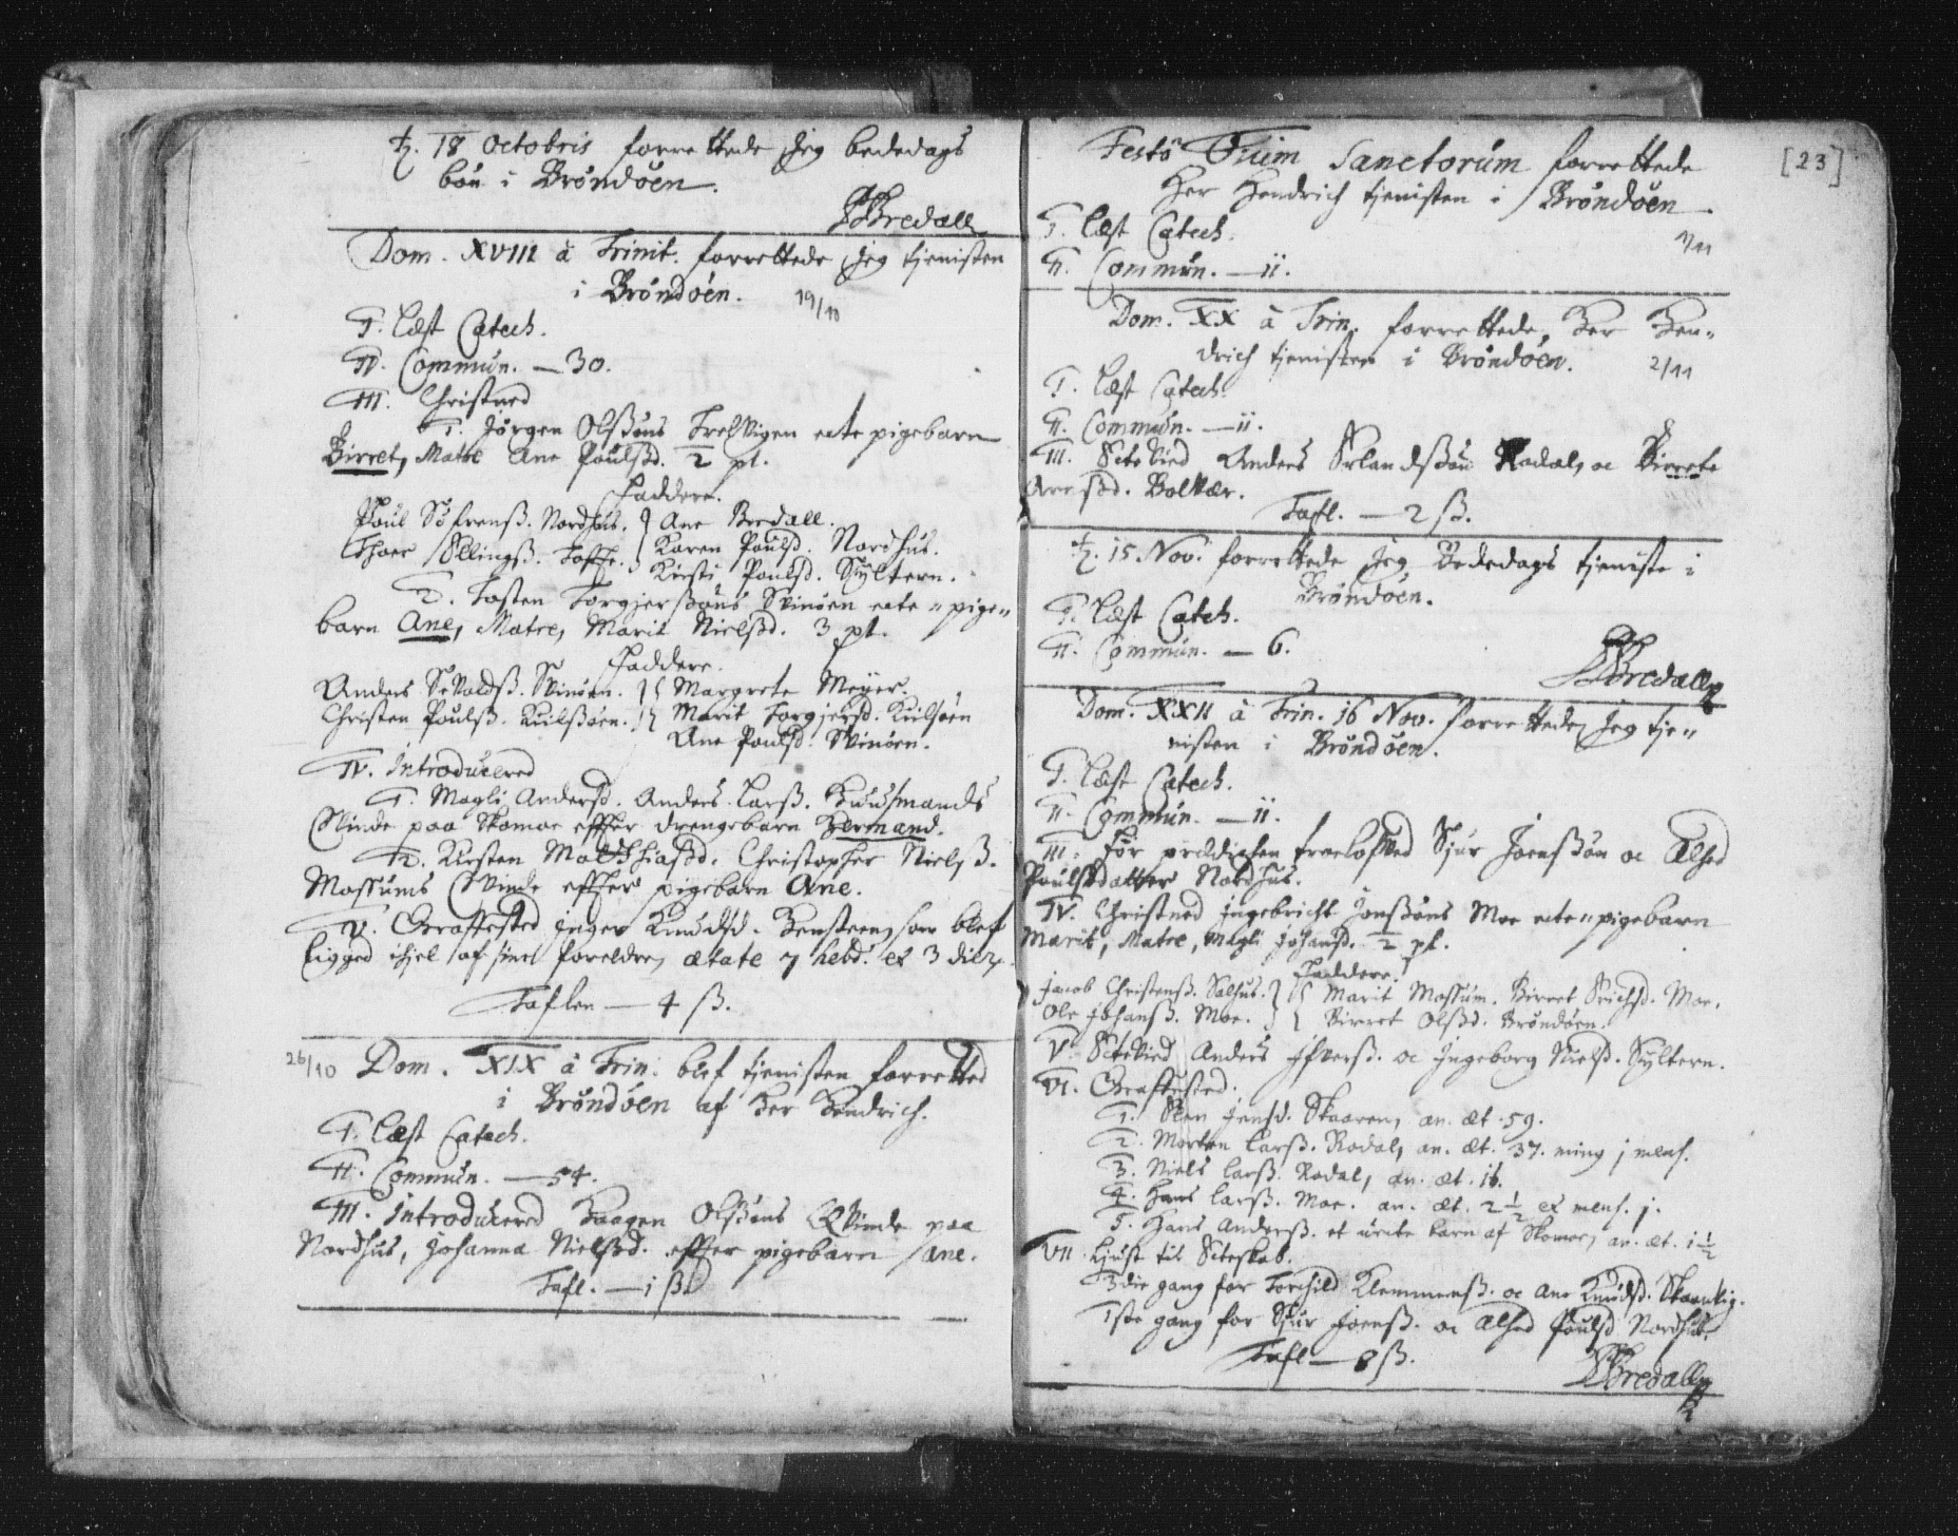 ꝧ. 18 Octobris forrettede Jeg bededags
bön i Bröndöen.
Bredall
Dom. XVIII à Trinit. forrettede Jeg tjenisten
i Bröndöen. 19/10
I. Læst Catech.
II. Commun. — 30.
III. Christned
1. Jörgen Olssöns Trelvigen ecte pigebarn
Birret, Matre Ane Poulsd. ½ pt.
Faddere.
Poul Söfrenss. Nordhus. Ane Bredall.
Thoer Ellingss. Toffte. Karen Poulsd. Nordhus.
Kirsti Poulsd. Syltern.
2. Tosten Torgjerssöns Svinöen ecte pige=
barn Ane, Matre, Marit Nielssd. 3 pt.
Faddere.
Anders Sevaldss. Svinöen. Margrete Meyer.
Christen Poulss. Kuilssöen. Marit Torgjersd. Kuilsöen
Ane Poulsd. Svinöen.
IV. Introducered
1. Magli Andersd. Anders Larss. Huusmands
Qvinde paa Skomoe effter drengebarn Hermand.
2. Kirsten Matthiassd. Christopher Nielss.
Mossums Qvinde effter pigebarn Ane.
V. Graffested Inger Knudsd. Hensteen, som blef
ligged ihjel af sine foreldre, ætate 7 hebd. et 3 dier.
Taflen — 4 ss.
26/10 Dom. XIX à Trin. blef tjenisten forretted
i Bröndöen af Her Hendrich.
I. Læst Catech.
II. Commun. — 54.
III. Introducered Haagen Olssöns Qvinde paa
Nordhus, Johanna Nielssd. effter pigebarn Ane.
Tafl. — 1 ss.
[23]
Festo Omnium Sanctorum forrettede
Her Hendrich tjenisten i Bröndöen.
1/11
I. Læst Catech.
II. Commun. — ii.
Dom. XX à Trin. forrettede Her Hen=
drich tjenisten i Bröndöen. 2/11
I. Læst Catech.
II. Commun. — ii.
III. Ectevied Anders Erlandssön Rodal, oc Birrete
Arnssd. Holkær.
Tafl. — 2 ss.
ꝧ. 15 Nov. forrettede Jeg Bededags tjeniste i
Bröndöen.
I. Læst Catch.
II. Commun. — 6.
Bredall
Dom. XXII à Trin. 16 Nov. forrettede Jeg tje=
nisten i Bröndöen.
I. Læst Catech.
II. Commun. — ii.
III. För prædichen troelofved Sjur Joenssön oc Alhed
Poulsdatter Nordhus.
IV. Christned Ingebricht Jonssöns Moe ecte pigebarn
Marit, Matre, Magli Johansd. ½ pt.
Faddere.
Jacob Christenss. Salhus. Marit Mossum. Birret Erichsd. Moe.
Ole Johanss. Moe. Birret Olssd. Bröndöen.
V. Ectevied Anders Ifverss. oc Ingeborg Nielsd. Syltern.
VI. Graffested.
1. Elen Jensd. Skaaren, an. æt. 59.
2. Morten Larss. Rodal, an. æt. 37. minq 1 mens.
3. Niels Larss. Rodal, an. æt. 16.
4. Hans Larss. Moe. an. æt. 2½ et mens. 1.
5. Hans Anderss. et uecte barn af Skomoe, an. æt. 1½
VII. Ljust til Ecteskab.
3die gang for Torchild Klemmenss. oc Ane Knudsd. Skaanlig.
1ste gang for Sjur Joenss. oc Alhed Poulsd Nordhus.
Tafl — 8 ss.
Bredall